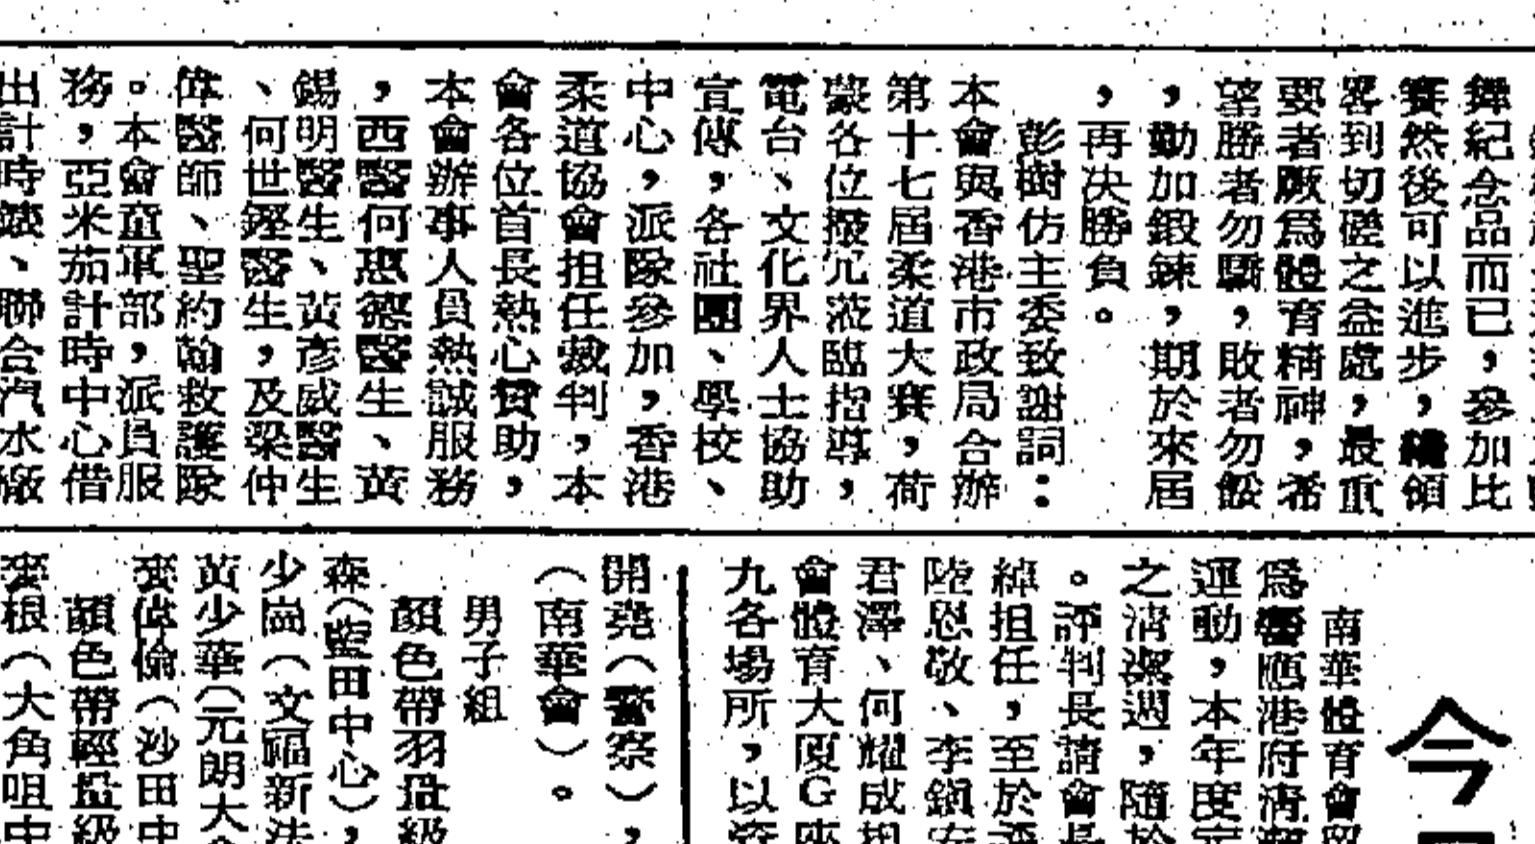 舞紀念品而已，參加比
賽然後可以進步，領
畧到切磋之益處，最重
要者厥爲體育精神，希
望勝者勿驕，敗者勿餒
，勤加鍛鍊，期於來屆
，再決勝負。
彭樹仿主委致謝詞：
本會與香港市政局合辦
第十七屆柔道大賽，荷
蒙各位撥冗蒞臨指導，
電台、文化界人士協助
宣傳，各社團、學校、
中心，派隊參加，香港
柔道協會担任裁判，本
會各位首長熱心贊助，
本會辦事人員熱誠服務
，西醫何惠德醫生、黃
錫明醫生、黃彥威醫生
、何世鏗醫生，及梁仲
偉醫師、聖約翰救護隊
。本會童軍部，派員服
務，亞米茄計時中心借
出計時鐘、聯合汽水廠
今
南華體育會
爲響應港府清潔
運動，本年度定
之清潔週，隨於
。評判長請會長
綽担任，至於評
陸恩敬、李鎮
君澤、何耀成
會體育大厦G座
九各場所，以
開堯（警察），
（南華會）。
男子組
顏色帶羽量級
森（藍田中心），
少崗（文福新法
黃少華（元朗大
麥偉倫（沙田中
顏色帶輕量級
麥根（大角咀中